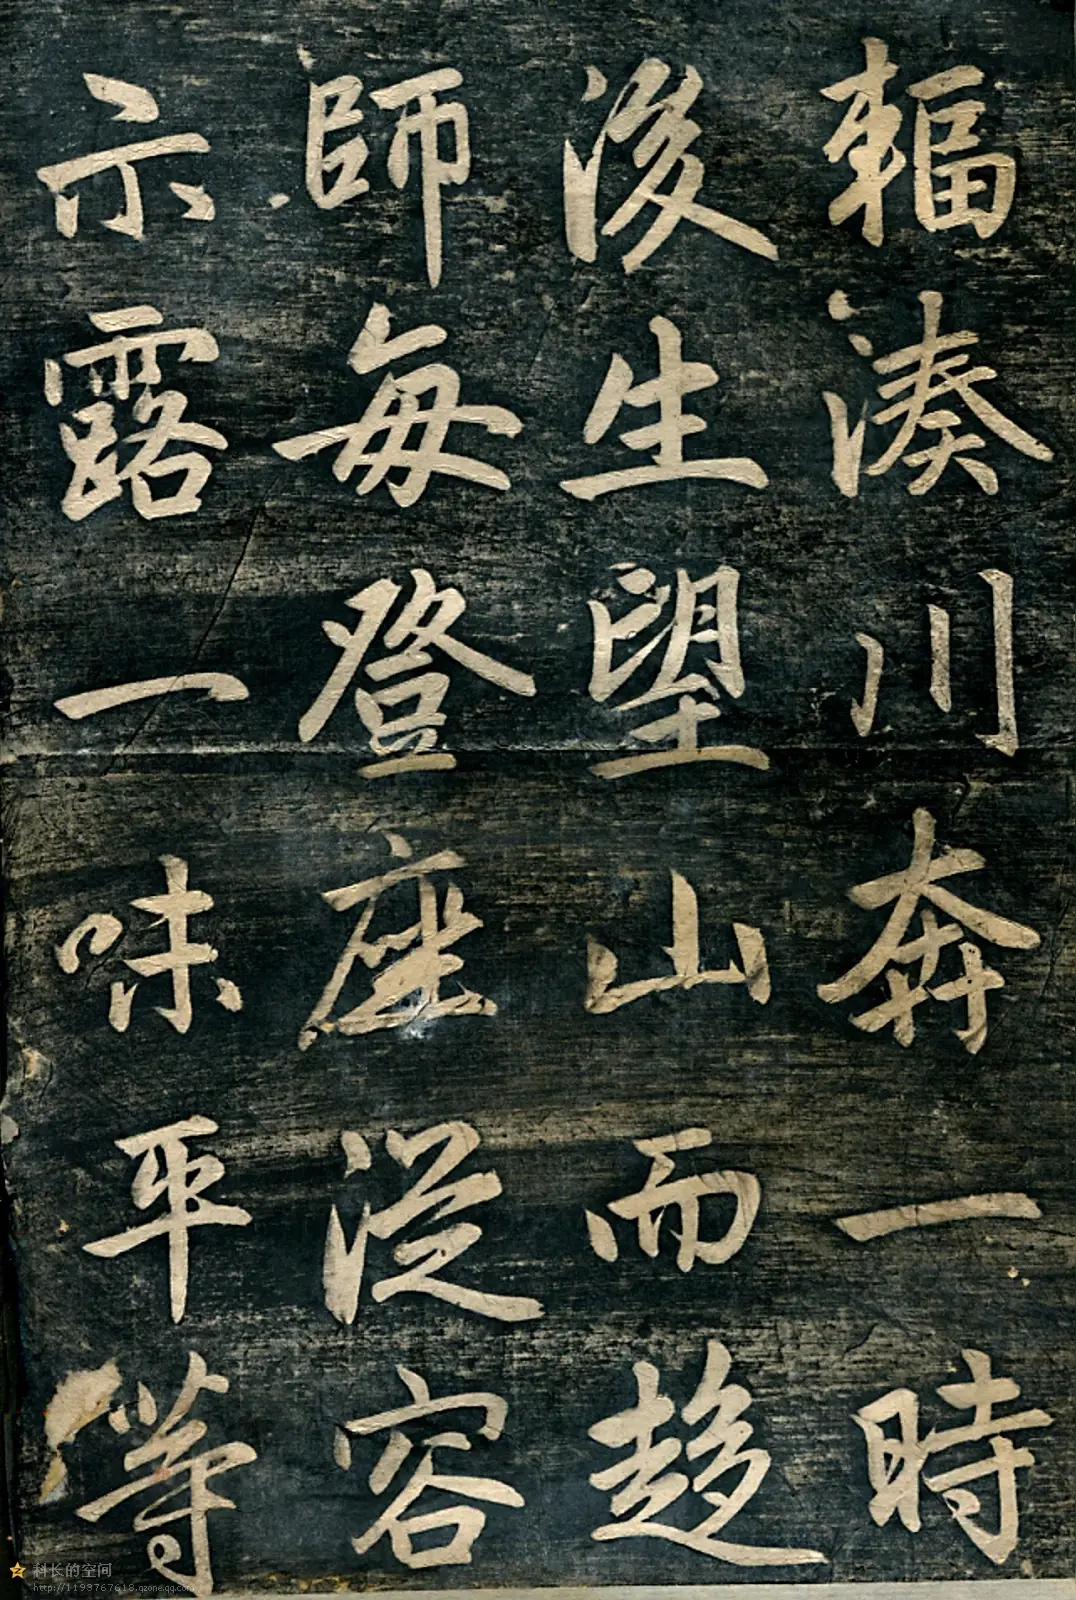 輻湊川奔一時
後生望山而趍
師每登座從容
示露一味平等
科长的空间
http://1193767618.qzone.qq.com